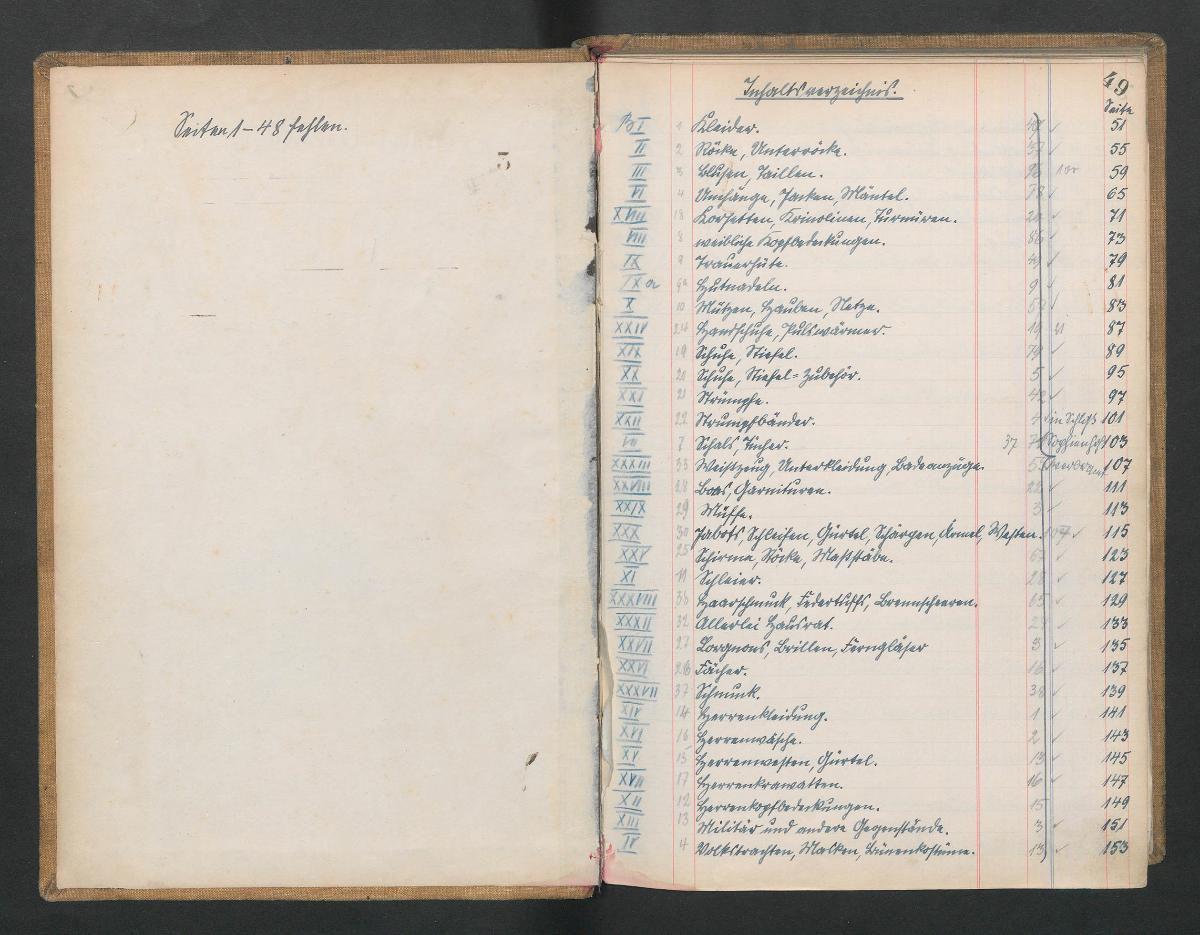 Seiten 1-48 fehlen.
3
49
Inhaltsverzeichnis.
Seite
I 1 Kleider. ✓ 51
II 2 Röcke, Unterröcke. ✓ 55
III 3 Blusen, Taillen. 59
VI Umhänge, Jacken, Mäntel. ✓ 65
XVIII 18 Korsetten, Krinolinen, Turnüren. ✓ 71
VIII 8 weibliche Kopfbedeckungen. 86 ✓ 73
IX 9 Trauerhüte. ✓ 79
IX a 9a Hutnadeln. 9 ✓ 81
X 10 Mützen, Hauben, Netze. ✓ 83
XXIV 24 Handschuhe, Pulswärmer. 87
XIX 19 Schuhe, Stiefel. 79 ✓ 89
XX 20 Schuhe, Stiefel=Zubehör. 5 ✓ 95
XXI 21 Strümpfe. 42 ✓ 97
XXII 22 Strumpfbänder. 101
VII 7 Schals, Tücher. 37 103
XXXIII 33 Weißzeug, Unterkleidung, Badeanzüge. 107
XXVIII 28 Boas, Garnituren. 22 ✓ 111
XXIX 29 Müffe. 3 ✓ 113
XXX 30 Jabots, Schleifen, Gürtel, Schärpen, Ärmel, Westen. 107 ✓ 115
XXV 25 Schirme, Stöcke, Maßstäbe. ✓ 123
XI 11 Schleier. 28 ✓ 127
XXXVIII 38 Haarschmuck, Federtuffs, Brennscheeren. 65 ✓ 129
XXXII 32 Allerlei Hausrat. ✓ 133
XXVII 27 Lorgnons, Brillen, Ferngläser 3 ✓ 135
XXVI 26 Fächer. 16 ✓ 137
XXXVII 37 Schmuck. 38 ✓ 139
XIV 14 Herrenkleidung. 1 ✓ 141
XVI 16 Herrenwäsche. 2 ✓ 143
XV 15 Herrenwesten, Gürtel. 13 ✓ 145
XVII 17 Herrenkrawatten. 16 ✓ 147
XII 12 Herrenkopfbedeckungen. 15 149
XIII 13 Militär und andere Gegenstände. 3 ✓ 151
IV 4 Volkstrachten, Masken, Bünenkostüme. 13 ✓ 153